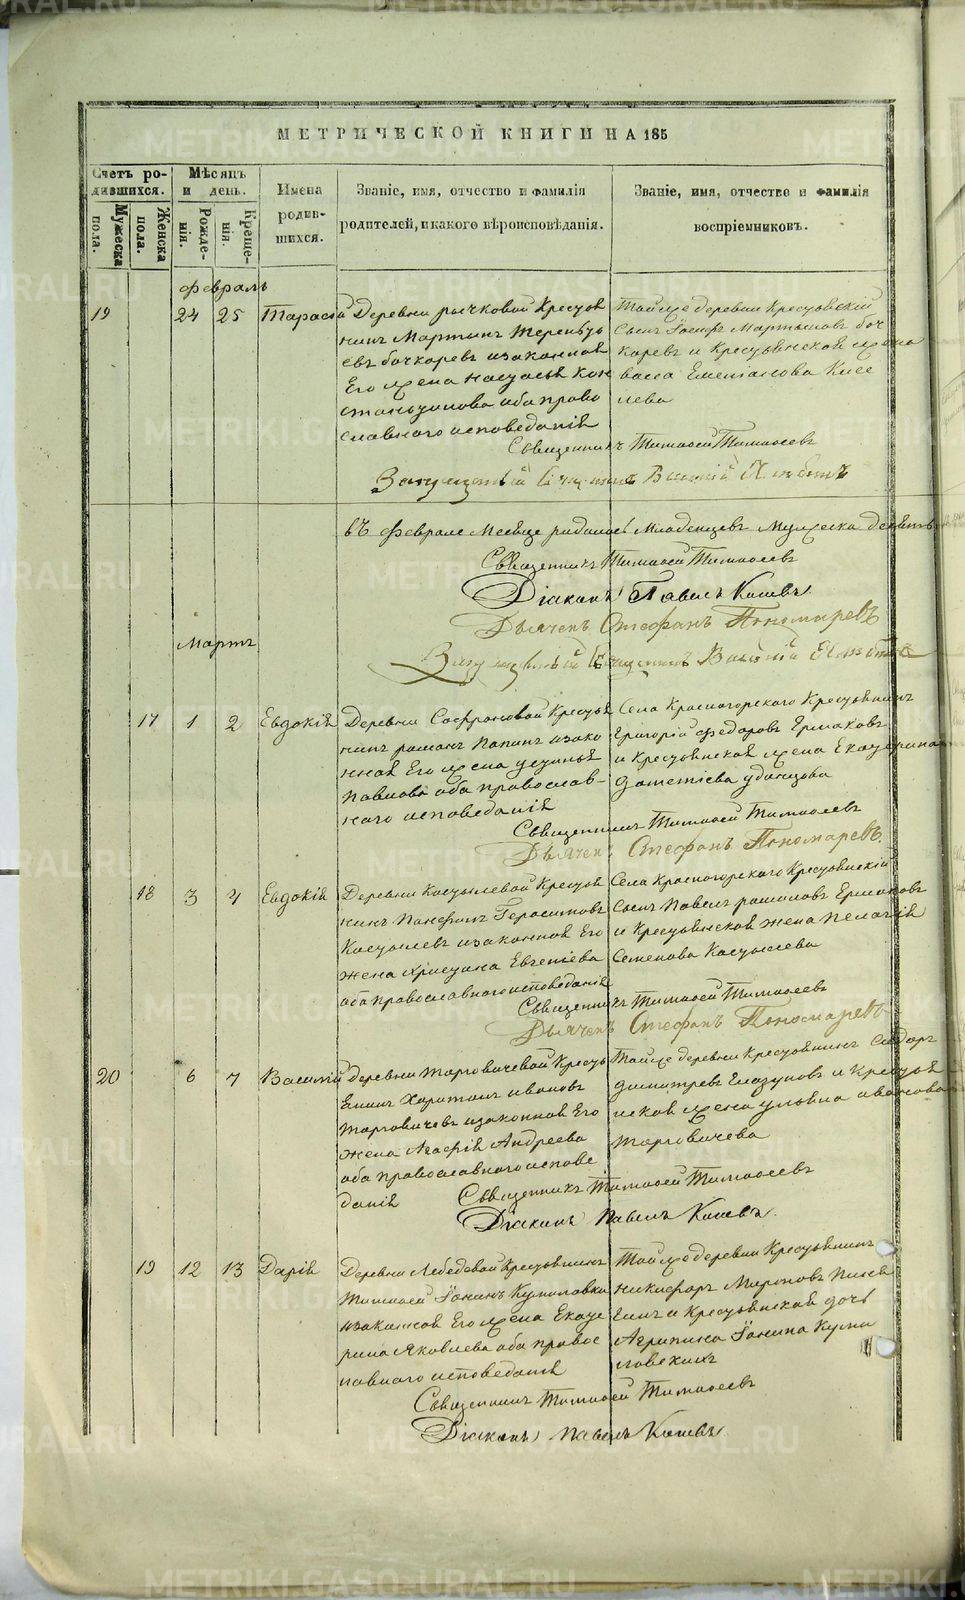 МЕТРИЧЕСКОЙ КНИГИ НА 185
Счетъ ро-
дившихся.
Мужеска
пола.
Женска
пола.
Мѣсяцъ
и день.
Рожде-
нія.
Креще-
нія.
Имена
родив-
шихся.
Званіе, имя, отчество и фамилія
родителей, и какого вѣроисповѣданія.
Званіе, имя, отчество и фамилія
воспріемниковъ.
Февраль
19 24 25 Тарасій
Деревни рычковой Кресть
нинъ Мартинъ Терентьу
евъ бочкаревъ изаконная
Его жена настасья Кон
стантинова оба право
славного исповеданія
Тойже деревни Крестьянскій
Сынъ Іосифъ Мартыновъ боч
каревъ и Крестьянская жена
васса Емеліанова Кисе
лева
Священникъ Тимофей Тимофеевъ
Священникъ
въ феврале Месяце родилось Младенцевъ Мужеска девять
Священникъ Тимофей Тимофеевъ
Діаконъ Павелъ
Дьячекъ Стефанъ Пономаревъ
Мартъ
17 1 2 Евдокія
Деревни Софроновой Кресть
нинъ романъ Папинъ изако
нная Его жена устинья
Павлова оба православ-
ного исповеданія
Села Красногорского Крестьянинъ
Григорій федоровъ Ермаковъ
и Крестьянская жена Екатерина
удинцова
Священникъ Тимофей Тимофеевъ
Дьячекъ Стефанъ Пономаревъ.
18 3 4 Евдокія
Деревни Костылевой Кресть
нинъ Панфилъ Герасимовъ
Костылевъ изаконная Его
жена христина Евгеніева
оба православного исповеданія
Села Красногорского Крестьянскій
Сынъ Павелъ романовъ Ермаковъ
и Крестьянская жена пелагія
Семенова Костылева
Священникъ Тимофей Тимофеевъ
Дьячекъ Стефанъ Пономаревъ
20 6 7 Василій
Деревни Торговичевой Кресть
Харитонъ ивановъ
Торговичевъ изаконная Его
жена Агафія Андреева
оба православного испове
данія
Тойже деревни Крестьянинъ Сидоръ
димитревъ Глазуновъ и Крестья
нская жена ульяна ивановна
Торговичева
Священникъ Тимофей Тимофеевъ
Діаконъ павелъ
19 12 13 Дарія
Деревни Лебедевой Крестьянинъ
Тимофей Іонинъ
изаконная Его жена Екате
рина Яковлева оба правос
лавного исповеданія
Тойже деревни Крестьянинъ
никифоръ Мироновъ
и Крестьянская дочь
Агрипина Іонина
Священникъ Тимофей Тимофеевъ
Діаконъ павелъ
METRIKI.GASO-URAL.RU